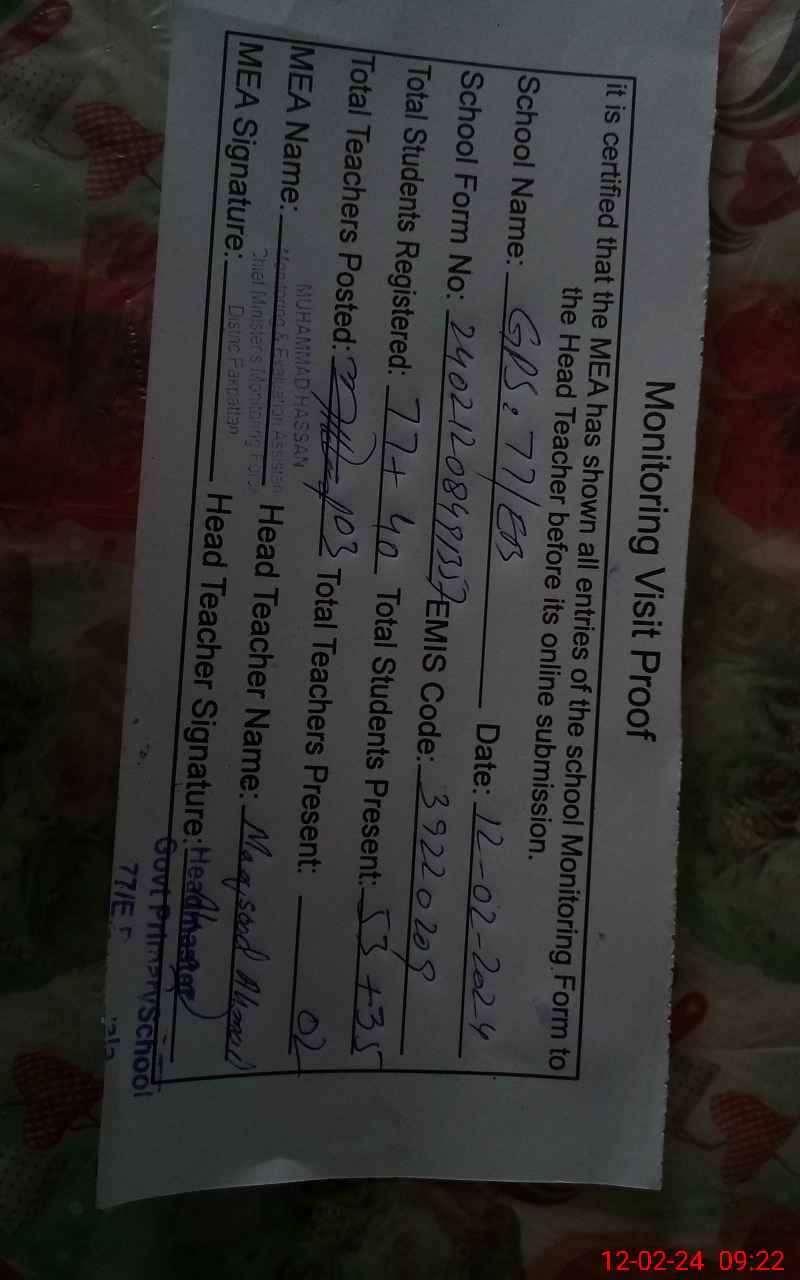 Monitoring Visit Proof
it is certified that the MEA has shown all entries of the school Monitoring Form to
the Head Teacher before its online submission.
School Name: GPS: 77/EB Date: 12-02-2024
School Form No: EMIS Code: 39220209
Total Students Registered: 77+40 Total Students Present: 53+35
Total Teachers Posted: 03 Total Teachers Present: 02
MUHAMMAD HASSAN
MEA Name: Monitoring & Evaluation Assistan Head Teacher Name: Maqsood Ahmed
Chief Minister's Monitoring Force
MEA Signature: Head Teacher Signature: Headmaster
District Pakpattan
Govt Primary School
77/E
12-02-24 09:22